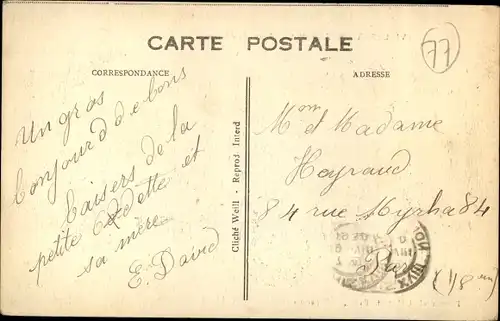 CARTE POSTALE
77
CORRESPONDANCE
ADRESSE
Un gros
bonjour d de bons
baisers de la
petite Cadette et
sa mère
E. David
Cliché Weill - Reprod. Interd
Mom et Madame
Heyraud
84 rue Myrha 84
Paris
(18 em)